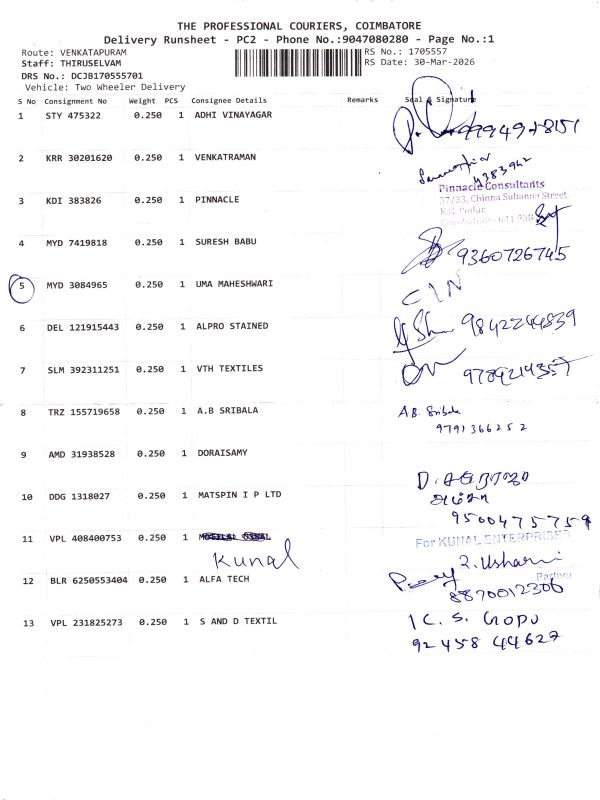 THE PROFESSIONAL COURIERS, COIMBATORE
Delivery Runsheet - PC2 - Phone No.:9047080280 - Page No.:1
Route: VENKATAPURAM
RS No.: 1705557
Staff: THIRUSELVAM
RS Date: 30-Mar-2026
DRS No.: DCJB170555701
Vehicle: Two Wheeler Delivery
S No Consignment No Weight PCS Consignee Details Remarks Seal & Signature
1 STY 475322 0.250 1 ADHI VINAYAGAR
2 KRR 30201620 0.250 1 VENKATRAMAN
Pinnacle Consultants
3 KDI 383826 0.250 1 PINNACLE 37/33, Chinna Subanna Street,
4 MYD 7419818 0.250 1 SURESH BABU
9360726745
5 MYD 3084965 0.250 1 UMA MAHESHWARI
C/N
6 DEL 121915443 0.250 1 ALPRO STAINED 9842244839
7 SLM 392311251 0.250 1 VTH TEXTILES
9789214357
8 TRZ 155719658 0.250 1 A.B SRIBALA A.B. Sribala
9791366252
9 AMD 31938528 0.250 1 DORAISAMY
10 DDG 1318027 0.250 1 MATSPIN I P LTD
9500475759
11 VPL 408400753 0.250 1 For KUNAL ENTERPRISES
Kunal
Partner
12 BLR 6250553404 0.250 1 ALFA TECH
8870012306
13 VPL 231825273 0.250 1 S AND D TEXTIL K. S. Gopu
92458 44627